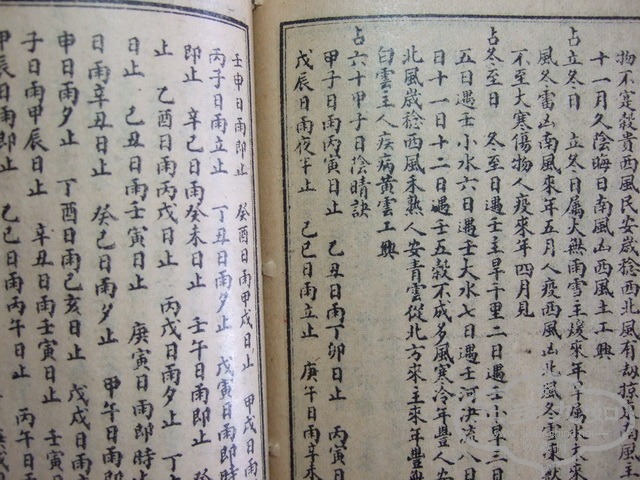 物不寔穀貴西風民安歲稔西北風有劫掠南風主
十一月久陰晦日南風凶西風主工興
占立冬日 立冬日属火無雨雪主煖來年旱属水來
風冬雷凶南風來年五月人疫西風凶北風冬雪凍獸
不至大寒傷物人疫來年四月見
占冬至日 冬至日遇壬主旱千里二日遇壬小旱三日
五日遇壬小水六日遇壬大水七日遇壬河決流八日
日十一日十二日遇壬五穀不成多風寒冷年豐人安
北風歲稔西風禾熟人安青雲從北方來主來年豐
白雲主人疾病黃雲工興
占六十甲子日陰晴訣
甲子日雨丙寅日止 乙丑日雨丁卯日止 丙寅日
戊辰日雨夜半止 己巳日雨立止 庚午日雨辛未
壬申日雨即止 癸酉日雨甲戌日止 甲戌日雨
丙子日雨立止 丁丑日雨夕止 戊寅日雨即時
即止 辛巳日雨癸未日止 壬午日雨即止 癸
止 乙酉日雨丙戌日止 丙戌日雨夕止 丁
日止 己丑日雨壬寅日止 庚寅日雨即時止
日雨辛丑日止 癸巳日雨夕止 甲午日雨
申日雨夕止 丁酉日雨己亥日止 戊戌日雨
子日雨甲辰日止 辛丑日雨壬寅日止 壬寅日
甲辰日雨即止 乙巳日雨丙午日止 丙午日